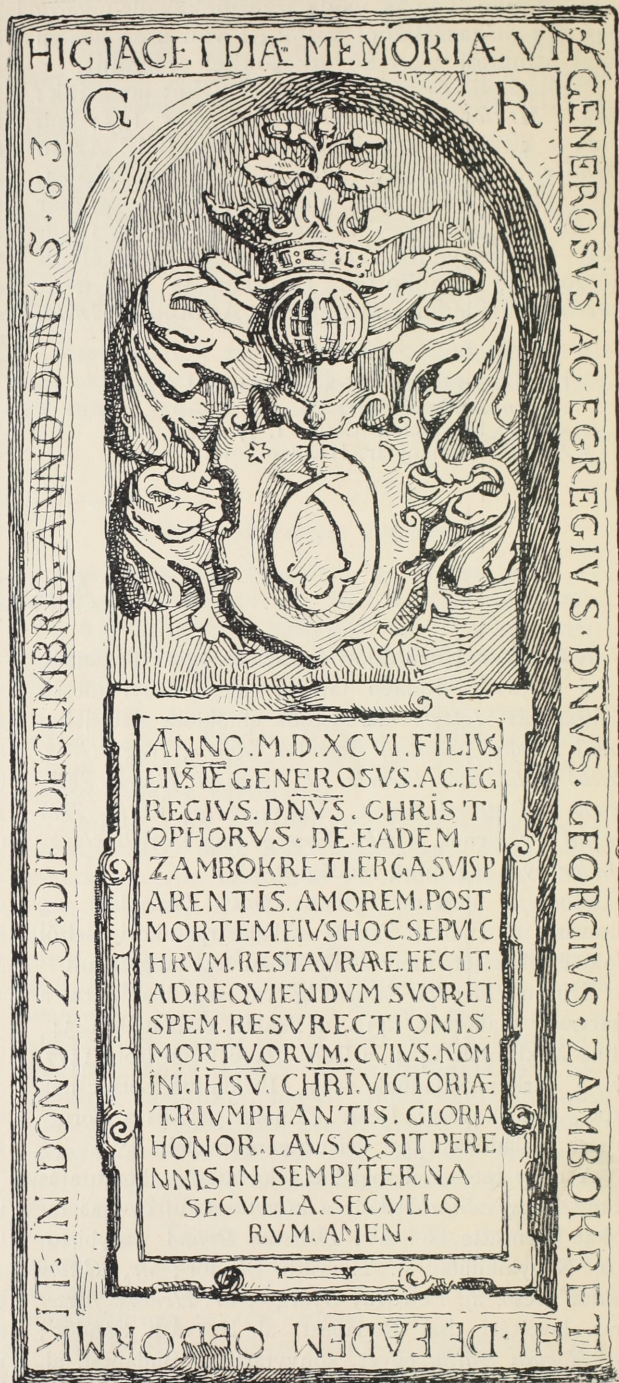 HIC IACET PIÆ MEMORIÆ VIR
GENEROSVS AC EGREGIVS · DNVS · GEORGIVS · ZAMBOKRET
HI · DE EADEM OBDORM
VIT · IN DOÑO Z3 · DIE DECEMBRIS · ANNO DON 15 · 83
G R
ANNO . M . D . XCVI . FILIVS
EIVS DE GENEROSVS . AC . EG
REGIVS . DNVS . CHRIST
OPHORVS . DE . EADEM
ZAMBOKRETI . ERGA SVIS P
ARENTIS . AMOREM . POST
MORTEM . EIVS HOC . SEPVLC
HRVM . RESTAVRARE . FECIT .
AD . REQVIENDVM SVOR, ET
SPEM . RESVRECTIONIS
MORTVORVM . CVIVS . NOM
INI . IHSV . CHRI . VICTORIÆ
TRIVMPHANTIS . GLORIA
HONOR . LAVS Q, SIT PERE
NNIS IN SEMPITERNA
SECVLLA . SECVLLO
RVM . AMEN .